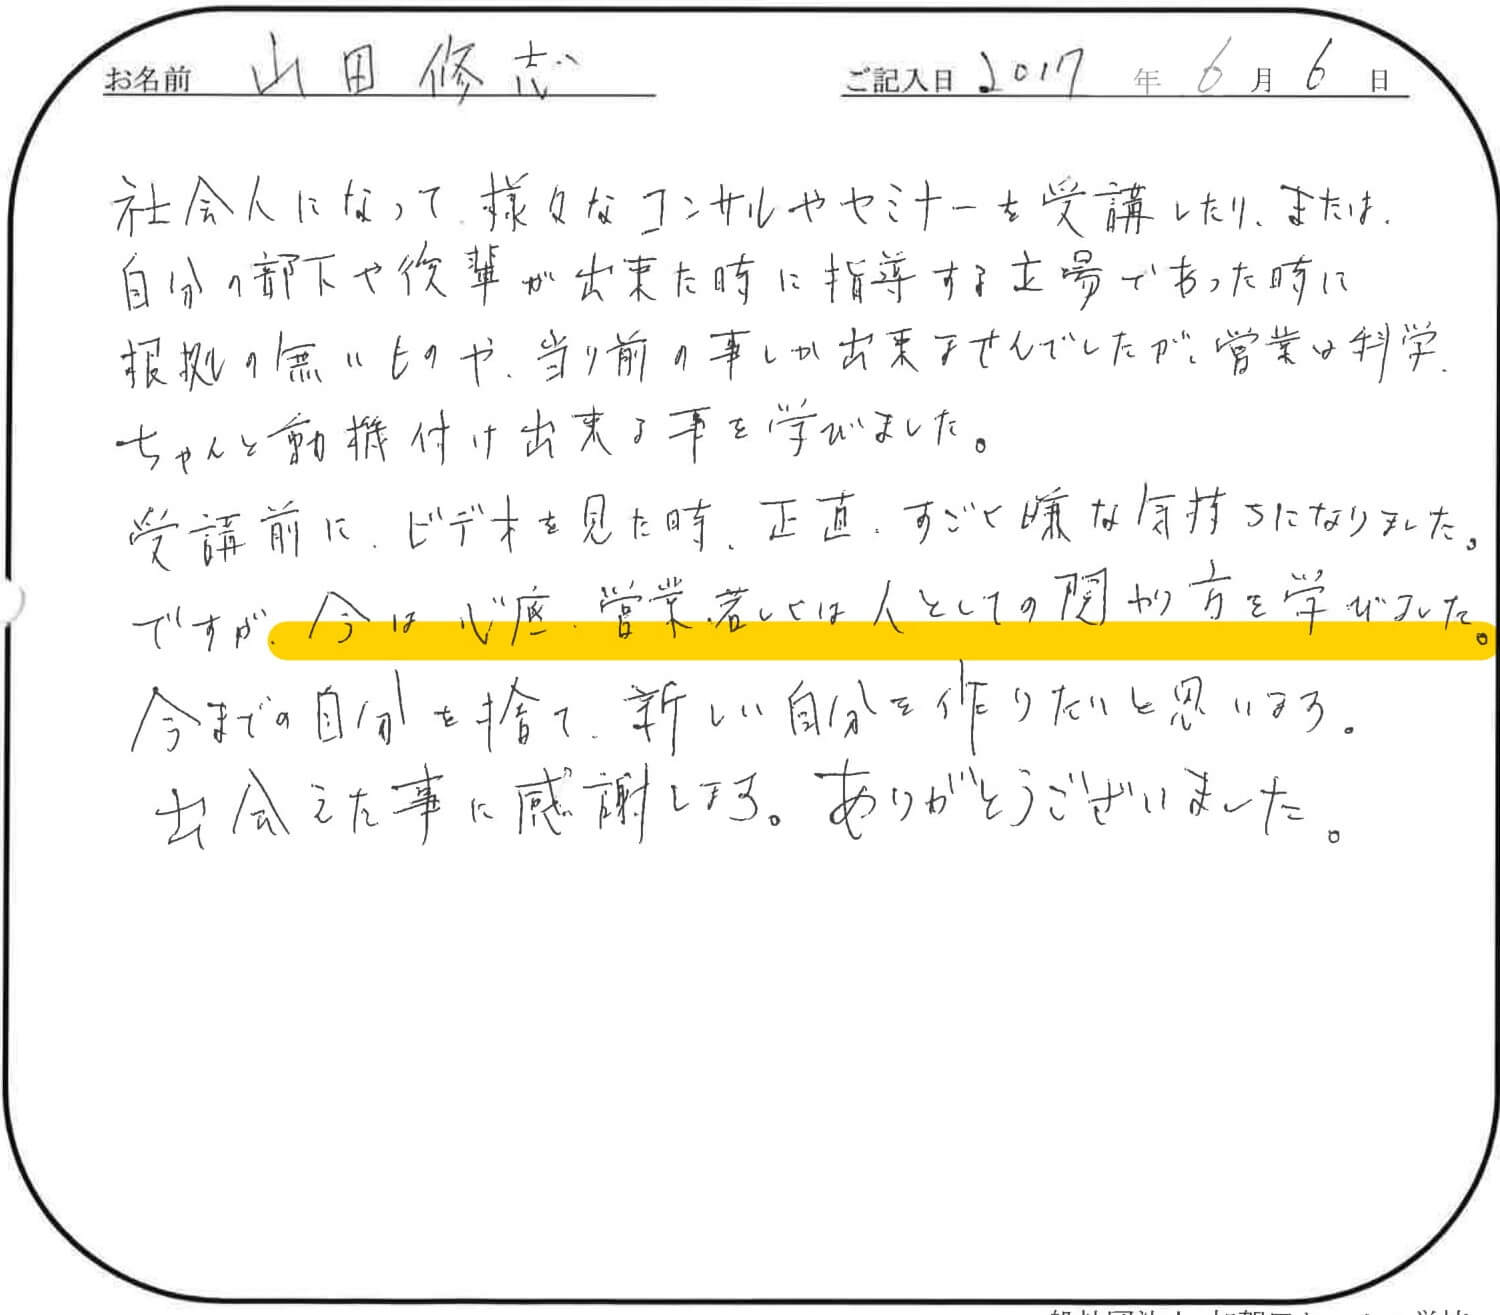 お名前 山田修志 ご記入日 2017年6月6日
社会人になって、様々なコンサルやセミナーを受講したり、または、
自分の部下や後輩が出来た時に指導する立場であった時に
根拠の無いものや、当り前の事しか出来ませんでしたが、営業は科学、
ちゃんと動機付け出来る事を学びました。
受講前に、ビデオを見た時、正直、すごく嫌な気持ちになりました。
ですが、今は心底、営業、若しくは人としての関わり方を学びました。
今までの自分を捨て、新しい自分を作りたいと思います。
出会えた事に感謝します。ありがとうございました。